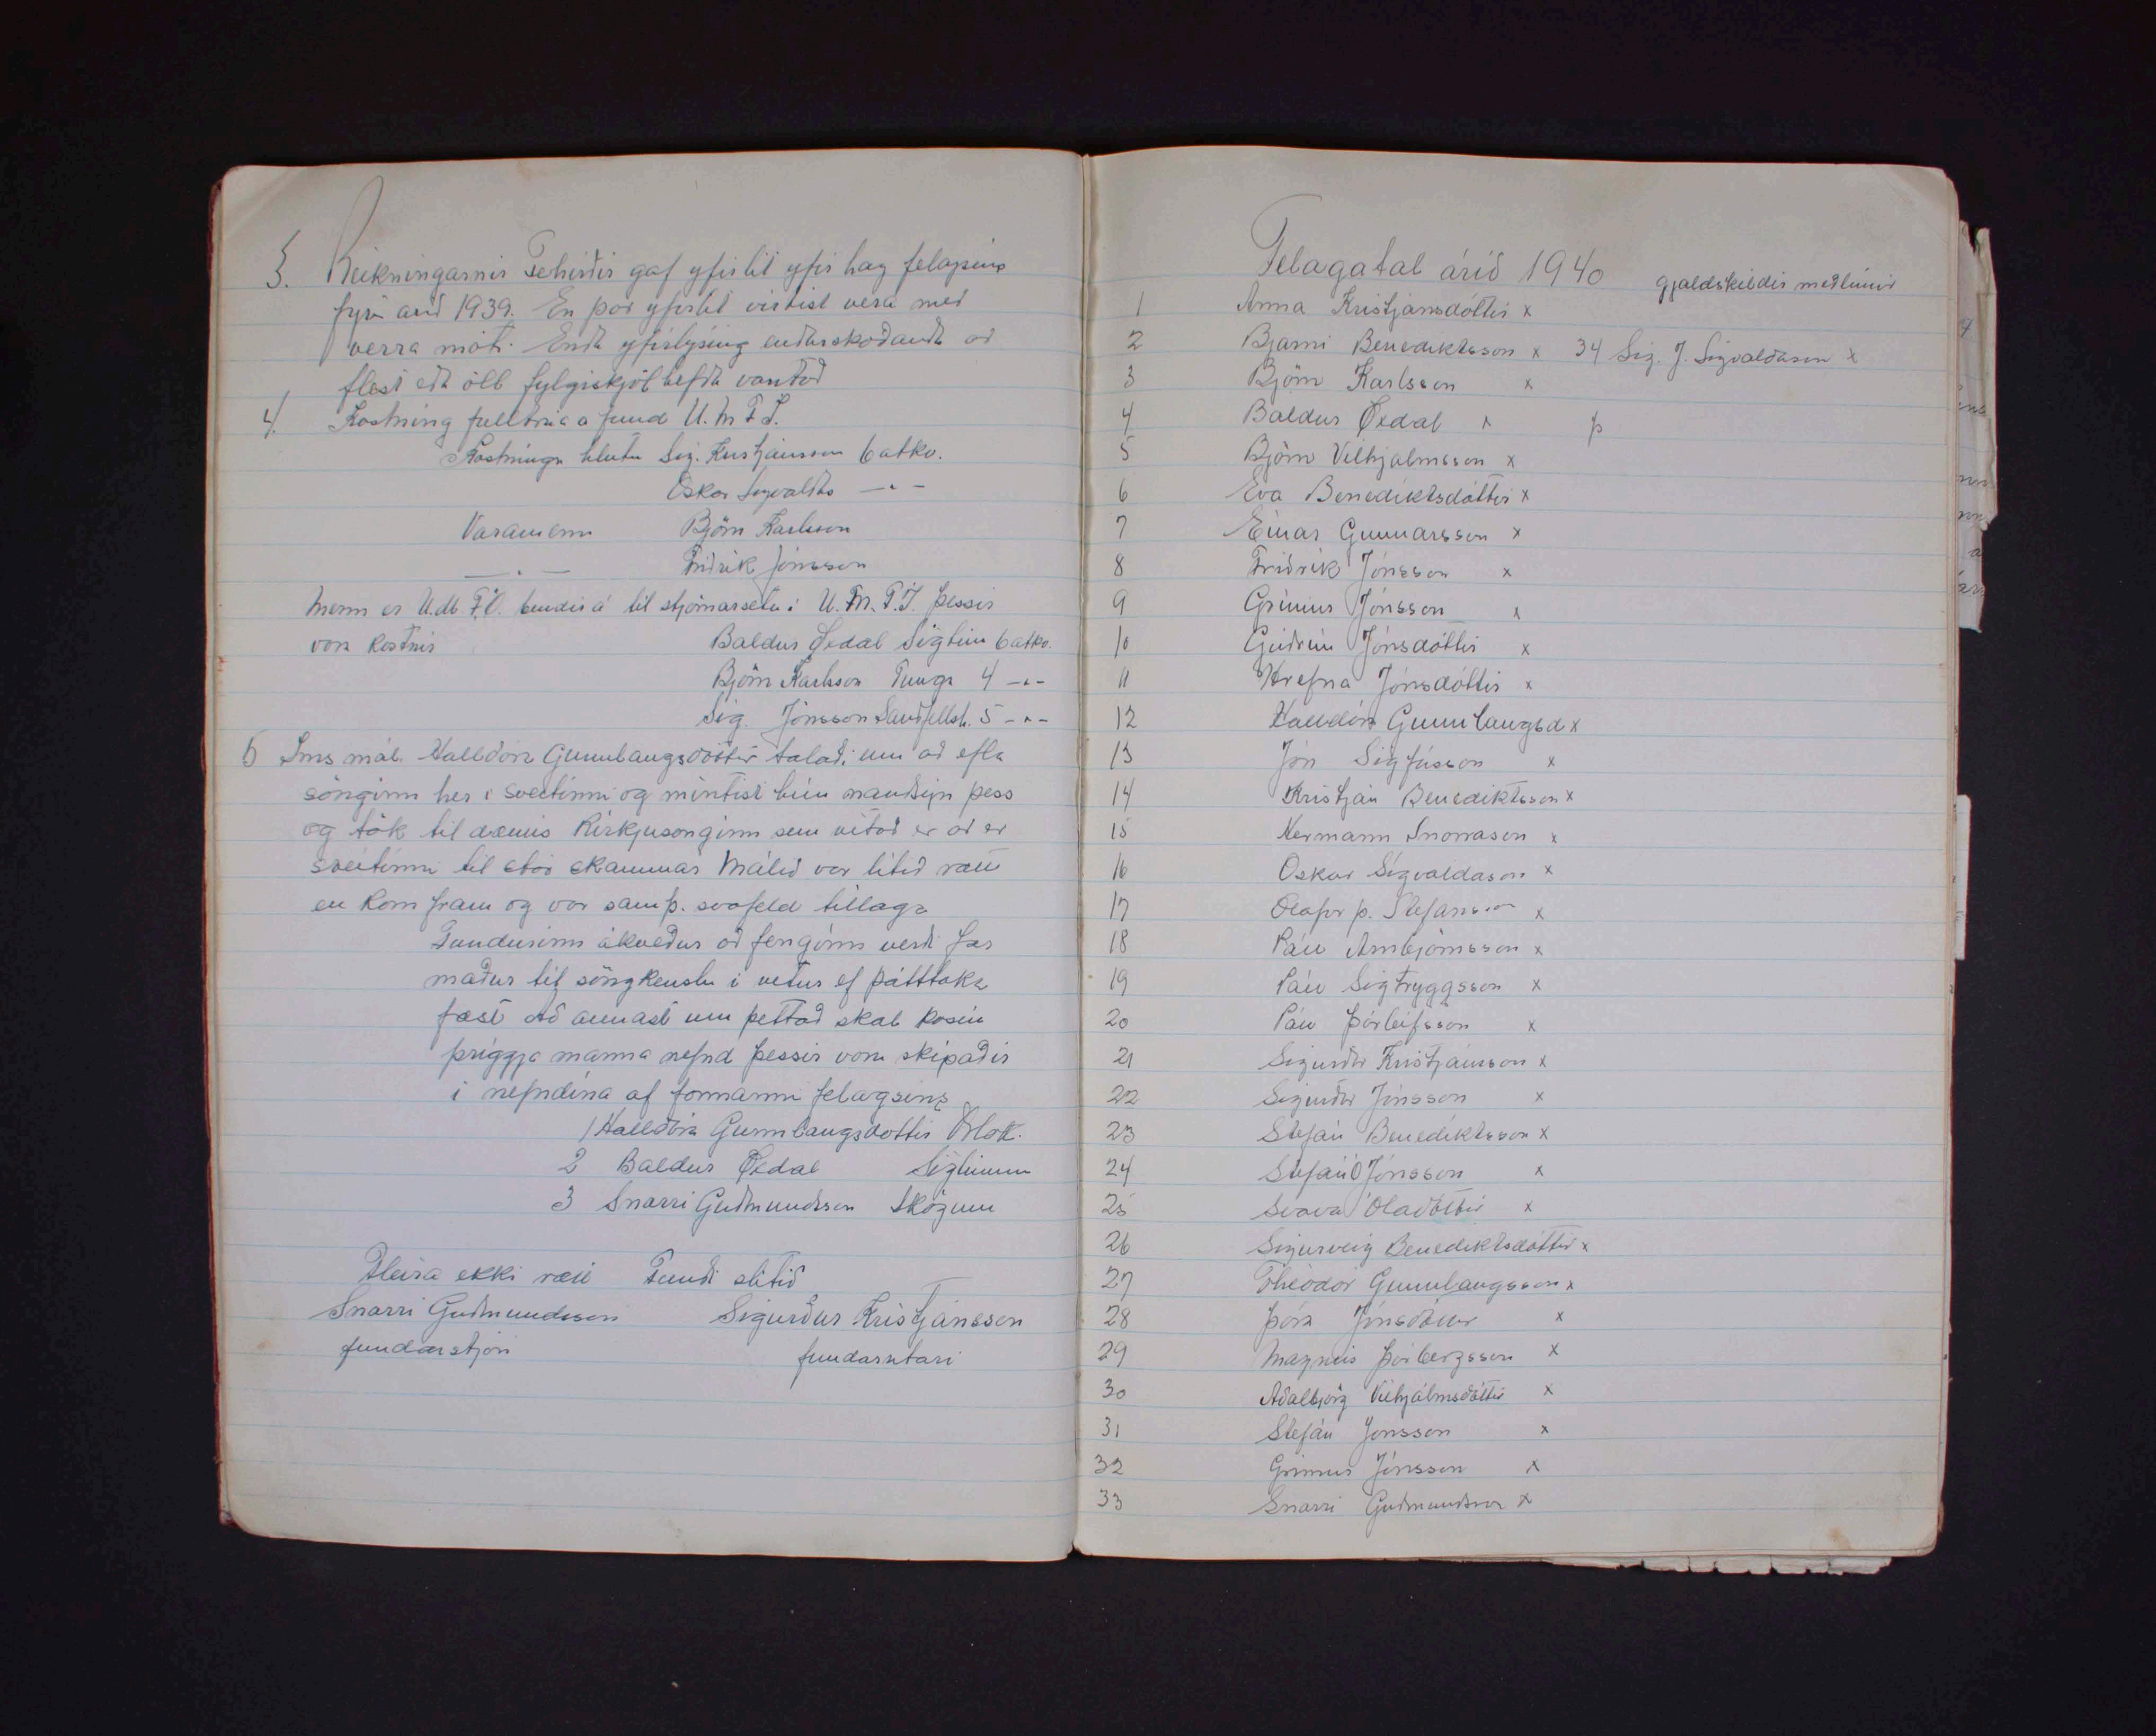 3. Reikningarnir Fehirðir gaf yfirlit yfir hag felagsins
fyrir arið 1939. En það yfirlit virtist vera með
verra móti. Enda yfirlýsing endurskoðanda að
flest eða öll fylgiskjöl hefðu vantað
4. Kostning fulltrúa a fund U.M.F.Í.
Kostningu hlutu Sig. Kristjánsson 6 atkv.
Oskar Sigvaldas -"-
Varamenn Björn Karlsson
-"- Friðrik Jónsson
Menn er U.M.F.Ö. bendir á til stjórnarsetu i U.M.F.Í. þessir
voru kostnir Baldur Öxdal Sigtún 6 atkv.
Björn Karlsson Tunga 4 -"-
Sig. Jónsson Sandfellsh. 5 -"-
5 Íms mál. Halldóra Gunnlaugsdóttir talaði um að efla
sönginn her i sveitinni og mintist hún nauðsyn þess
og tók til dæmis Kirkjusönginn sem vitað er að er
sveitinni til stór skammar Málið var litið rætt
en kom fram og var samþ. svofeld tillaga
Fundurinn ákveður að fenginn verði fær
maður til söngkenslu i vetur ef þátttaka
fæst að annast um þettað skal kosin
þriggja manna nefnd þessir voru skipaðir
i nefndina af formanni felagsins
1 Halldóra Gunnlaugsdottir Ærlæk.
2 Baldur Öxdal Sigtúnum
3 Snorri Guðmundsson Skógum
Fleira ekki rætt Fundi slitið
Snorri Guðmundsson Sigurður Kristjánsson
fundarstjóri fundarritari
Felagatal árið 1940 gjaldskildir meðlimir
1 Anna Kristjansdóttir x
2 Bjarni Benediktsson x 34 Sig. J. Sigvaldason x
3 Björn Karlsson x
4 Baldur Öxdal x þ
5 Björn Vilhjalmsson x
6 Eva Benediktsdóttir x
7 Einar Gunnarsson x
8 Friðrik Jónsson x
9 Grimur Jónsson x
10 Guðrún Jónsdóttir x
11 Hrefna Jónsdóttir x
12 Halldóra Gunnlaugsd x
13 Jón Sigfússon x
14 Kristján Benediktsson x
15 Hermann Snorrason x
16 Oskar Sigvaldason x
17 Olafur þ. Stefansson x
18 Páll Arnbjörnsson x
19 Páll Sigtryggsson x
20 Páll Þórleifsson x
21 Sigurður Kristjánsson x
22 Sigurður Jónsson x
23 Stefán Benediktsson x
24 Stefán O Jónsson x
25 Svava Óladóttir x
26 Sigurveig Benediktsdóttir x
27 Theódór Gunnlaugsson x
28 Þóra Jónsdóttir x
29 Magnús Þorbergsson x
30 Aðalbjörg Vilhjálmsdóttir x
31 Stefán Jónsson x
32 Grimur Jónsson x
33 Snorri Guðmundsson x